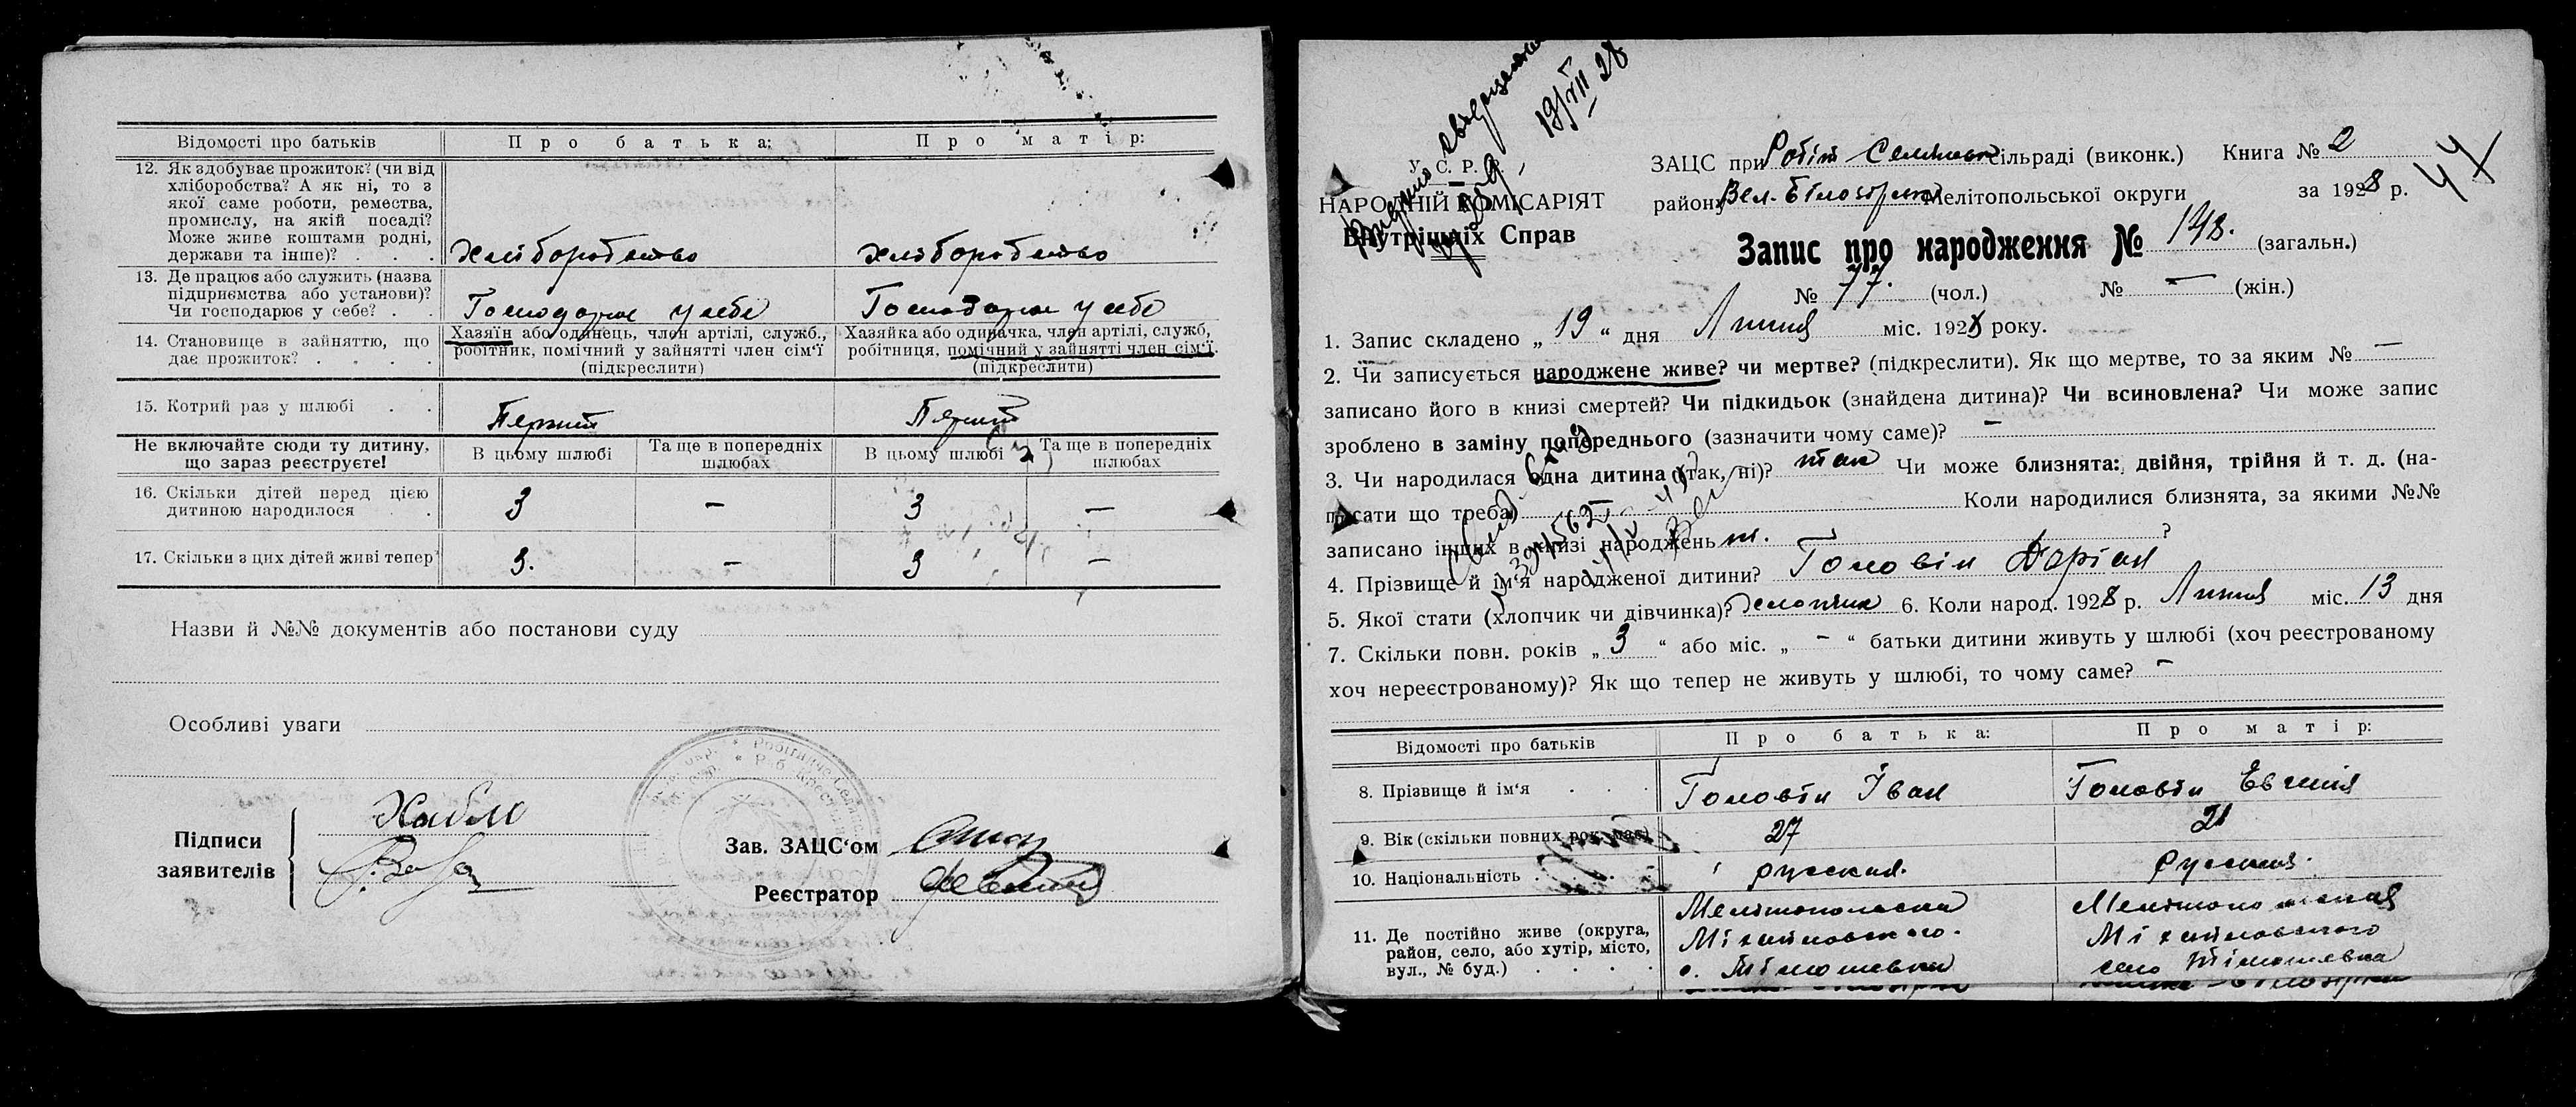 Відомості про батьків
Про батька:
Про матір:
12. Як здобуває прожиток? (чи від
хліборобства? А як ні, то з
якої саме роботи, ремества,
промислу, на якій посаді?
Може живе коштами родні,
держави та інше)? . . .
Хліборобство
Хліборобство
13. Де працює або служить (назва
підприємства або установи)?
Чи господарює у себе? . .
Господарює у себе
Господарює у себе
14. Становище в зайняттю, що
дає прожиток? . . . .
Хазяїн або одинець, член артілі, служб.,
робітник, помічний у зайнятті член сім'ї
(підкреслити)
Хазяйка або одиначка, член артілі, служб,
робітниця, помічний у зайнятті член сім'ї.
(підкреслити)
15. Котрий раз у шлюбі . .
Перший
Перший
Не включайте сюди ту дитину,
що зараз реєструєте!
В цьому шлюбі
Та ще в попередніх
шлюбах
В цьому шлюбі
Та ще в попередніх
шлюбах
16. Скільки дітей перед цією
дитиною народилося . .
3 – 3 –
17. Скільки з цих дітей живі тепер
3. – 3 –
Назви й №№ документів або постанови суду
Особливі уваги
Підписи
заявителів
Зав. ЗАЦС'ом
Реєстратор
19/VII 28
У. С. Р. Р.
НАРОДНІЙ КОМІСАРІЯТ
Внутрішніх Справ
ЗАЦС при Робіт Селянськ сільраді (виконк.) Книга № 2
47
району Вел.-Білозірськ Мелітопольської округи за 1928 р.
Запис про народження № 148. (загальн.)
№ 77. (чол.) № – (жін.)
1. Запис складено „ 19 " дня Липня міс. 1928 року.
2. Чи записується народжене живе? чи мертве? (підкреслити). Як що мертве, то за яким № –
записано його в книзі смертей? Чи підкидьок (знайдена дитина)? Чи всиновлена? Чи може запис
зроблено в заміну попереднього (зазначити чому саме)? –
3. Чи народилася одна дитина (так, ні)? так Чи може близнята: двійня, трійня й т. д. (на-
писати що треба) Коли народилися близнята, за якими №№
записано інших в книзі народжень ?
4. Прізвище й ім'я народженої дитини? Головін Доріан
5. Якої стати (хлопчик чи дівчинка)? Хлопчик 6. Коли народ. 1928 р. Липня міс. 13 дня
7. Скільки повн. років „ 3 " або міс. „ – " батьки дитини живуть у шлюбі (хоч реєстрованому
хоч нереєстрованому)? Як що тепер не живуть у шлюбі, то чому саме? –
Відомості про батьків
Про батька:
Про матір:
8. Прізвище й ім'я . . .
Головін Іван
Головін Евгенія
9. Вік (скільки повних рок. має)
27
21
10. Національність . . . .
русская.
русская.
11. Де постійно живе (округа,
район, село, або хутір, місто,
вул., № буд.) . . . .
Мелітопольська
Міхайловського.
с. Тімошевка
Мелітопольская
Міхайловского
село Тімошевка